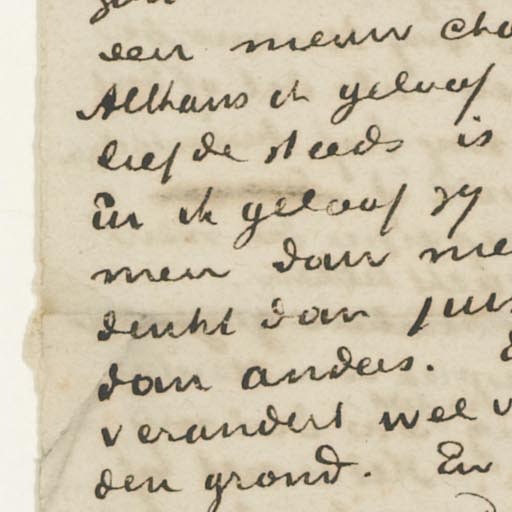 een nieuw cha
Althans ik geloof
liefde steeds is
En ik geloof zy
men dan me
denkt dan juis
dan anders.
verandert wel v
den grond. En